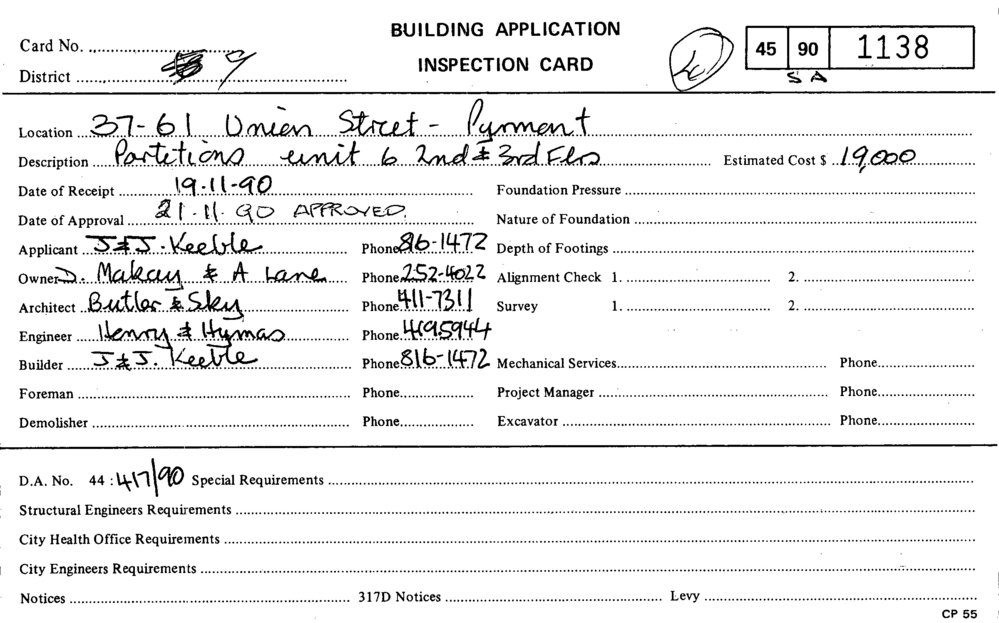 BUILDING APPLICATION
INSPECTION CARD
Card No.
45 90 1138
District 9
SA
Location 37-61 Union Street - Pyrmont
Description Partetions unit 6 2nd & 3rd Flrs Estimated Cost $ 19,000
Date of Receipt 19.11.90 Foundation Pressure
Date of Approval 21.11.90 APPROVED. Nature of Foundation
Applicant J & J. Keeble Phone 816-1472 Depth of Footings
Owner D. Makay & A Lane Phone 252-4022 Alignment Check 1. 2.
Architect Butler & Sky Phone 411-7311 Survey 1. 2.
Engineer Henry & Hymas Phone 4195944
Builder J & J. Keeble Phone 816-1472 Mechanical Services Phone
Foreman Phone Project Manager Phone
Demolisher Phone Excavator Phone
D.A. No. 44 : 417/90 Special Requirements
Structural Engineers Requirements
City Health Office Requirements
City Engineers Requirements
Notices 317D Notices Levy
CP 55